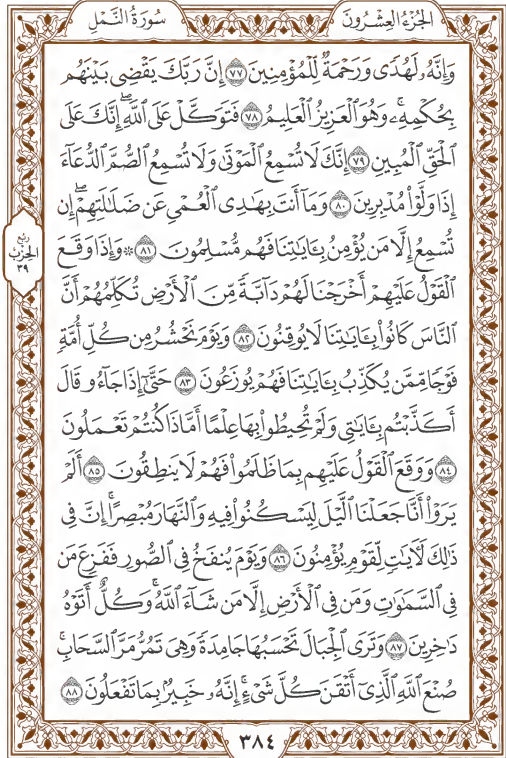 الجُزْءُ العِشْرُونَ
سُورَةُ النَّمْلِ
وَإِنَّهُۥ لَهُدًى وَرَحْمَةٌ لِّلْمُؤْمِنِينَ ٧٧ إِنَّ رَبَّكَ يَقْضِى بَيْنَهُم
بِحُكْمِهِۦۚ وَهُوَ ٱلْعَزِيزُ ٱلْعَلِيمُ ٧٨ فَتَوَكَّلْ عَلَى ٱللَّهِۖ إِنَّكَ عَلَى
ٱلْحَقِّ ٱلْمُبِينِ ٧٩ إِنَّكَ لَا تُسْمِعُ ٱلْمَوْتَىٰ وَلَا تُسْمِعُ ٱلصُّمَّ ٱلدُّعَآءَ
إِذَا وَلَّوْا۟ مُدْبِرِينَ ٨٠ وَمَآ أَنتَ بِهَـٰدِى ٱلْعُمْىِ عَن ضَلَـٰلَتِهِمْۖ إِن
تُسْمِعُ إِلَّا مَن يُؤْمِنُ بِـَٔايَـٰتِنَا فَهُم مُّسْلِمُونَ ٨١ ۞ وَإِذَا وَقَعَ
ٱلْقَوْلُ عَلَيْهِمْ أَخْرَجْنَا لَهُمْ دَآبَّةً مِّنَ ٱلْأَرْضِ تُكَلِّمُهُمْ أَنَّ
ٱلنَّاسَ كَانُوا۟ بِـَٔايَـٰتِنَا لَا يُوقِنُونَ ٨٢ وَيَوْمَ نَحْشُرُ مِن كُلِّ أُمَّةٍ
فَوْجًا مِّمَّن يُكَذِّبُ بِـَٔايَـٰتِنَا فَهُمْ يُوزَعُونَ ٨٣ حَتَّىٰٓ إِذَا جَآءُو قَالَ
أَكَذَّبْتُم بِـَٔايَـٰتِى وَلَمْ تُحِيطُوا۟ بِهَا عِلْمًا أَمَّاذَا كُنتُمْ تَعْمَلُونَ
٨٤ وَوَقَعَ ٱلْقَوْلُ عَلَيْهِم بِمَا ظَلَمُوا۟ فَهُمْ لَا يَنطِقُونَ ٨٥ أَلَمْ
يَرَوْا۟ أَنَّا جَعَلْنَا ٱلَّيْلَ لِيَسْكُنُوا۟ فِيهِ وَٱلنَّهَارَ مُبْصِرًاۚ إِنَّ فِى
ذَٰلِكَ لَـَٔايَـٰتٍ لِّقَوْمٍ يُؤْمِنُونَ ٨٦ وَيَوْمَ يُنفَخُ فِى ٱلصُّورِ فَفَزِعَ مَن
فِى ٱلسَّمَـٰوَٰتِ وَمَن فِى ٱلْأَرْضِ إِلَّا مَن شَآءَ ٱللَّهُۚ وَكُلٌّ أَتَوْهُ
دَٰخِرِينَ ٨٧ وَتَرَى ٱلْجِبَالَ تَحْسَبُهَا جَامِدَةً وَهِىَ تَمُرُّ مَرَّ ٱلسَّحَابِۚ
صُنْعَ ٱللَّهِ ٱلَّذِىٓ أَتْقَنَ كُلَّ شَىْءٍۚ إِنَّهُۥ خَبِيرٌۢ بِمَا تَفْعَلُونَ ٨٨
ربع
الحزب
٣٩
٣٨٤